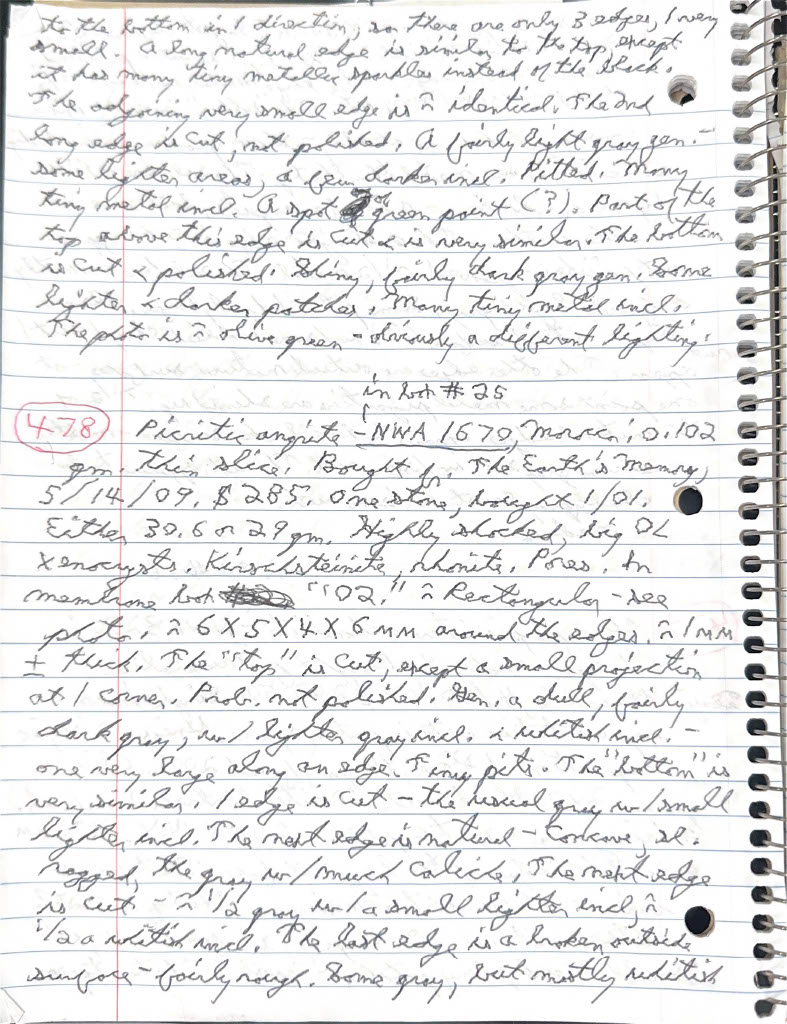 to the bottom in 1 direction, so there are only 3 edges, 1 very
small. A long natural edge is similar to the top, except
it has many tiny metallic sparkles instead of the black.
The adjoining very small edge is ≈ identical. The 2nd
long edge is cut, not polished. A fairly light gray gen. -
some lighter areas, a few darker incl. Pitted. Many
tiny metal incl. A spot of green paint (?). Part of the
top above this edge is cut & is very similar. The bottom
is cut & polished. Shiny, fairly dark gray gen. Some
lighter & darker patches. Many tiny metal incl.
The photo is ≈ olive green - obviously a different lighting.
in book # 25
478 Picritic angrite - NWA 1670, Morocco, 0.102
gm. thin slice. Bought fr. The Earth's Memory,
5/14/09. $285. One stone, bought 1/01.
Either 30.6 or 29 gm. Highly shocked, big OL
xenocrysts. Kirschsteinite, rhonite. Pores. In
membrane box "'02." ≈ Rectangular - see
photo. ≈ 6 X 5 X 4 X 6 MM around the edges. ≈ 1 MM
± thick. The "top" is cut, except a small projection
at 1 corner. Prob. not polished. Gen. a dull, fairly
dark gray, w/ lighter gray incl. & whitish incl. -
one very large along an edge. Tiny pits. The "bottom" is
very similar. 1 edge is cut - the usual gray w/ small
lighter incl. The next edge is natural - concave, sl.
ragged, the gray w/ much caliche. The next edge
is cut - ≈ 1/2 gray w/ a small lighter incl, ≈
1/2 a whitish incl. The last edge is a broken outside
surface - fairly rough. Some gray, but mostly whitish